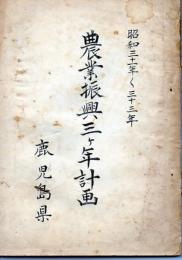 昭和三十一年〜三十三年
農業振興三ヶ年計画
鹿児島県